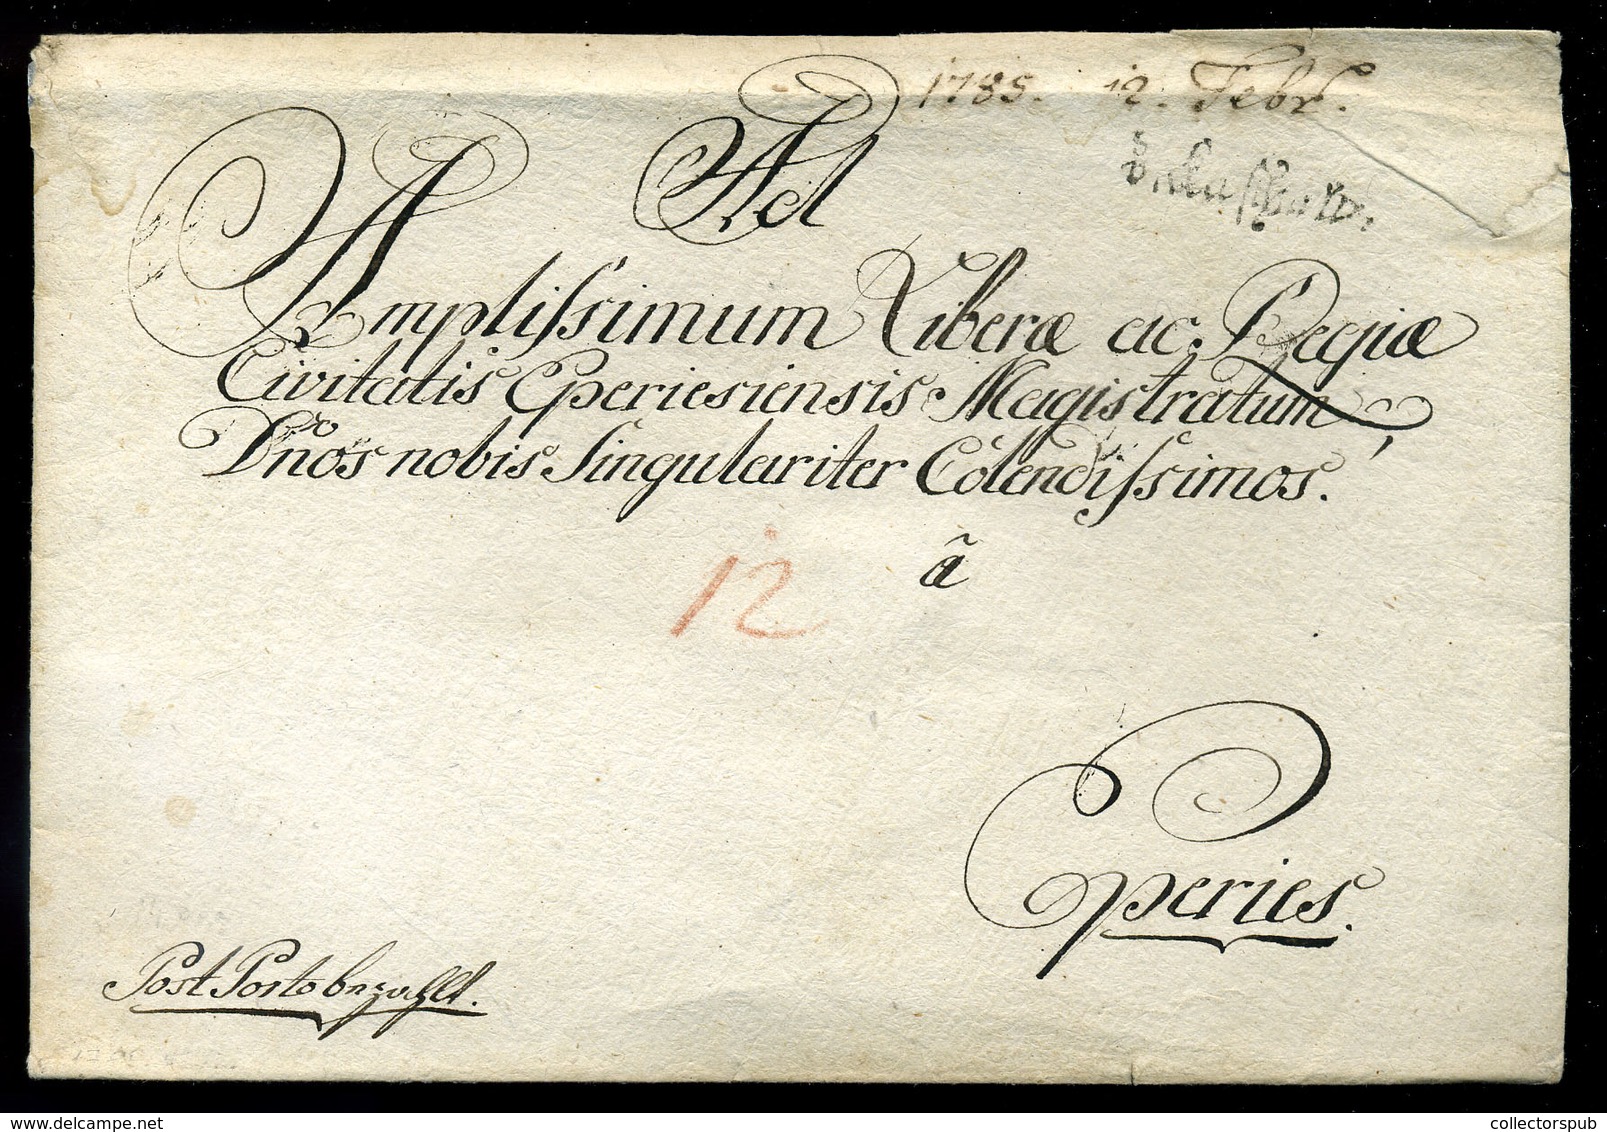 1785. 12. Febr.
Ad
Amplissimum Liberæ ac Regiæ
Civitatis Eperiesiensis Magistratum
Dnos nobis Singulariter Colendissimos.
12
ã
Eperies.
Post Porto bezahlt.
collectorspub